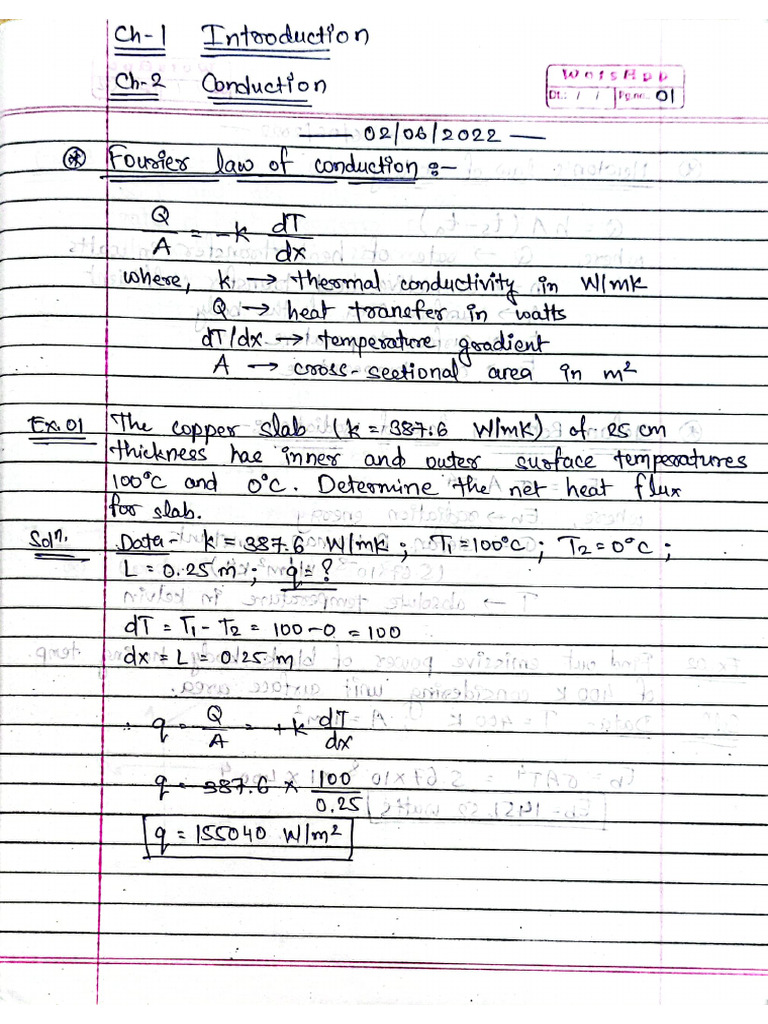 Ch-1 Introduction
Ch-2 Conduction
Dt.: / / Pg.no. 01
— 02/06/2022 —
⊛ Fourier law of conduction :-
Q/A = -k dT/dx
where, k → thermal conductivity in W/mK
Q → heat transfer in watts
dT/dx → temperature gradient
A → cross-sectional area in m²
Ex.01 The copper slab (k = 387.6 W/mK) of 25 cm
thickness has inner and outer surface temperatures
100°C and 0°C. Determine the net heat flux
for slab.
Solⁿ. Data - k = 387.6 W/mK ; T₁ = 100°C ; T₂ = 0°C ;
L = 0.25 m ; q = ?
dT = T₁ - T₂ = 100 - 0 = 100
dx = L = 0.25 m
∴ q = Q/A = + k dT/dx
q = 387.6 × 100/0.25
q = 155040 W/m²